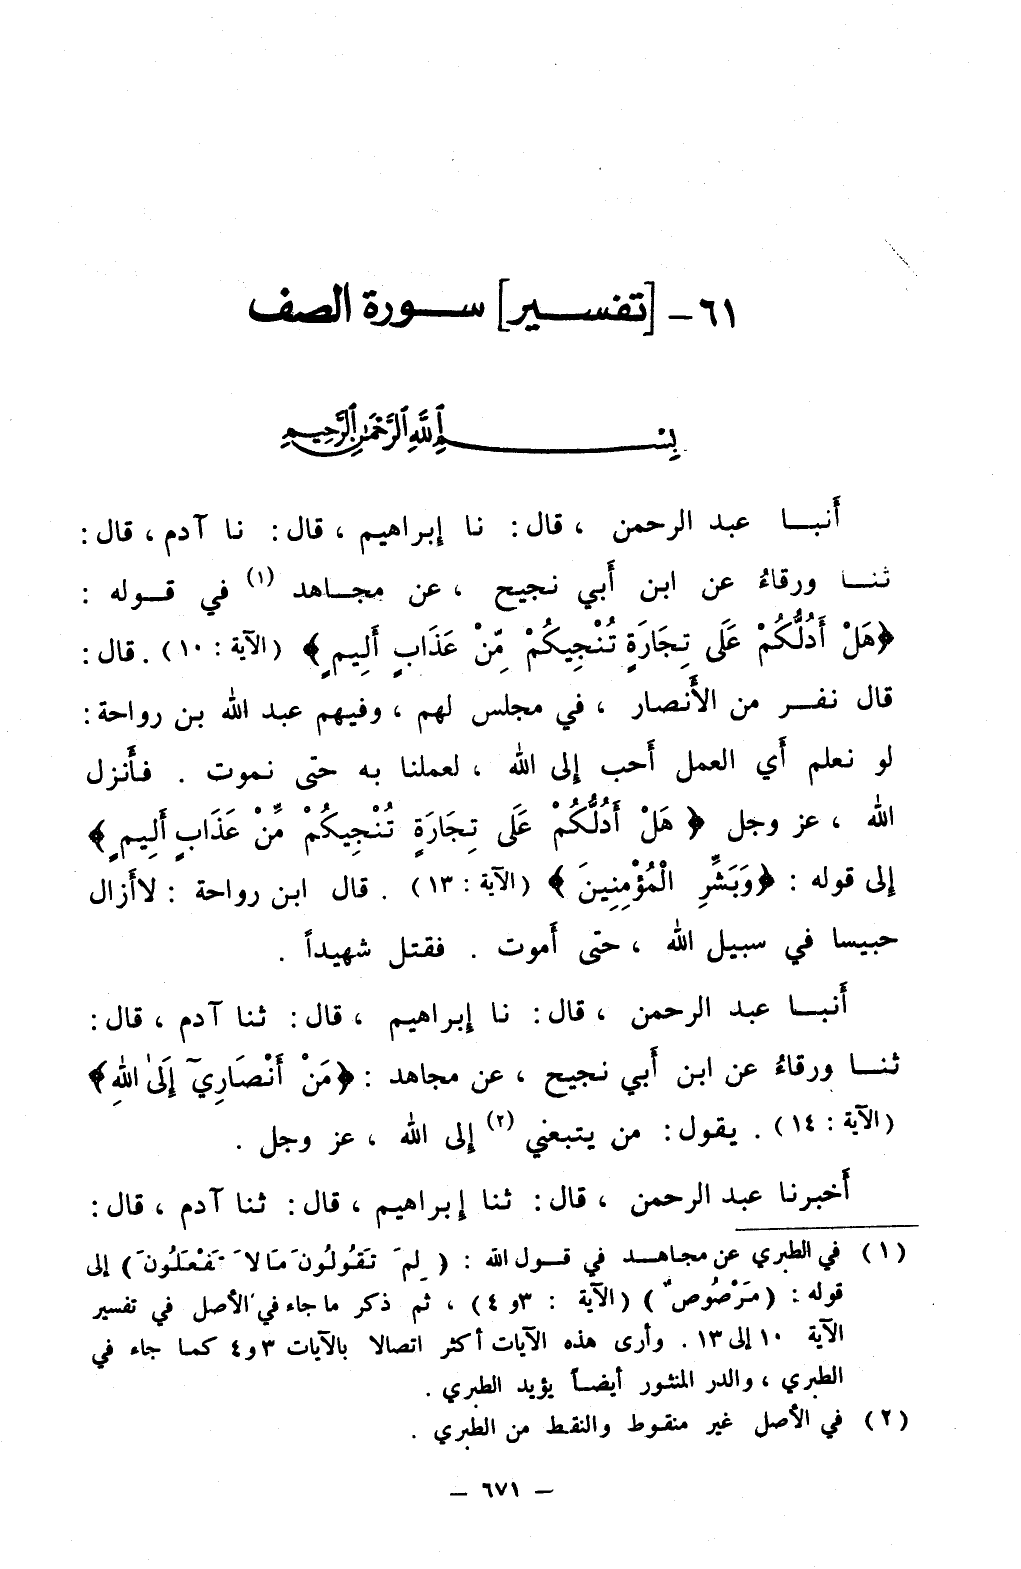 ٦١ - [تفسير] سورة الصف
بسم الله الرحمن الرحيم
أنبا عبد الرحمن ، قال : نا إبراهيم ، قال : نا آدم ، قال :
ثنا ورقاءُ عن ابن أبي نجيح ، عن مجاهد (١) في قوله :
﴿هَلْ أَدُلُّكُمْ عَلَى تِجَارَةٍ تُنْجِيكُمْ مِّنْ عَذَابٍ أَلِيمٍ﴾ (الآية : ١٠) . قال :
قال نفر من الأنصار ، في مجلس لهم ، وفيهم عبد الله بن رواحة :
لو نعلم أي العمل أحب إلى الله ، لعملنا به حتى نموت . فأنزل
الله ، عز وجل ﴿ هَلْ أَدُلُّكُمْ عَلَى تِجَارَةٍ تُنْجِيكُمْ مِّنْ عَذَابٍ أَلِيمٍ ﴾
إلى قوله : ﴿وَبَشِّرِ الْمُؤْمِنِينَ ﴾ (الآية : ١٣) . قال ابن رواحة : لاأزال
حبيسا في سبيل الله ، حتى أموت . فقتل شهيداً .
أنبا عبد الرحمن ، قال : نا إبراهيم ، قال : ثنا آدم ، قال :
ثنا ورقاءُ عن ابن أبي نجيح ، عن مجاهد : ﴿مَنْ أَنْصَارِيَ إِلَىٰ اللهِ﴾
(الآية : ١٤) . يقول : من يتبعني (٢) إلى الله ، عز وجل .
أخبرنا عبد الرحمن ، قال : ثنا إبراهيم ، قال : ثنا آدم ، قال :
(١) في الطبري عن مجاهد في قول الله : (لِمَ تَقُولُونَ مَالا تَفْعَلُونَ) إلى
قوله : (مَرْصُوصٌ) (الآية : ٣و ٤) ، ثم ذكر ماجاء في الأصل في تفسير
الآية ١٠ إلى ١٣ . وأرى هذه الآيات أكثر اتصالا بالآيات ٣و٤ كما جاء في
الطبري ، والدر المنثور أيضاً يؤيد الطبري .
(٢) في الأصل غير منقوط والنقط من الطبري .
- ٦٧١ -